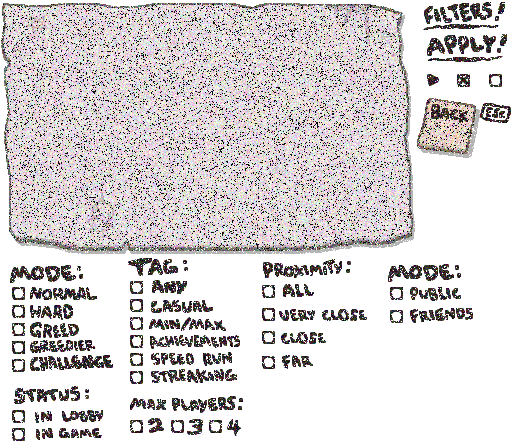 FILTERS!
APPLY!
BACK
ESC
MODE:
NORMAL
HARD
GREED
GREEDIER
CHALLENGE
STATUS:
IN LOBBY
IN GAME
TAG:
ANY
CASUAL
MIN/MAX
ACHIEVEMENTS
SPEED RUN
STREAKING
MAX PLAYERS:
2 3 4
PROXIMITY:
ALL
VERY CLOSE
CLOSE
FAR
MODE:
PUBLIC
FRIENDS